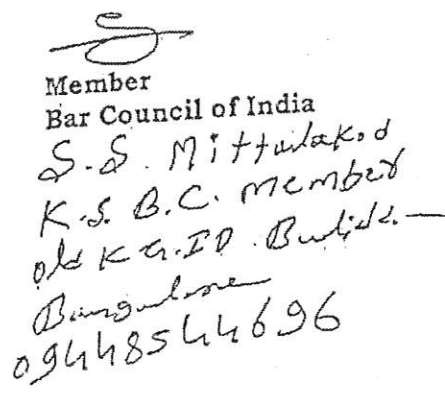 Member
Bar Council of India
S.S. Mittalakod
K.S.B.C. member
old K.G.ID. Build.—
Bangalore
09448544696